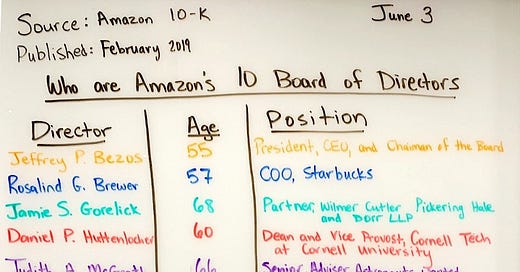 Source: Amazon 10-K
June 3
Published: February 2019
Who are Amazon's 10 Board of Directors
Director Age Position
Jeffrey P. Bezos 55 President, CEO, and Chairman of the Board
Rosalind G. Brewer 57 COO, Starbucks
Jamie S. Gorelick 68 Partner, Wilmer Cutler Pickering Hale
and Dorr LLP
Daniel P. Huttenlocher 60 Dean and Vice Provost, Cornell Tech
at Cornell University
Judith A. McGrath 66 Senior Advisor